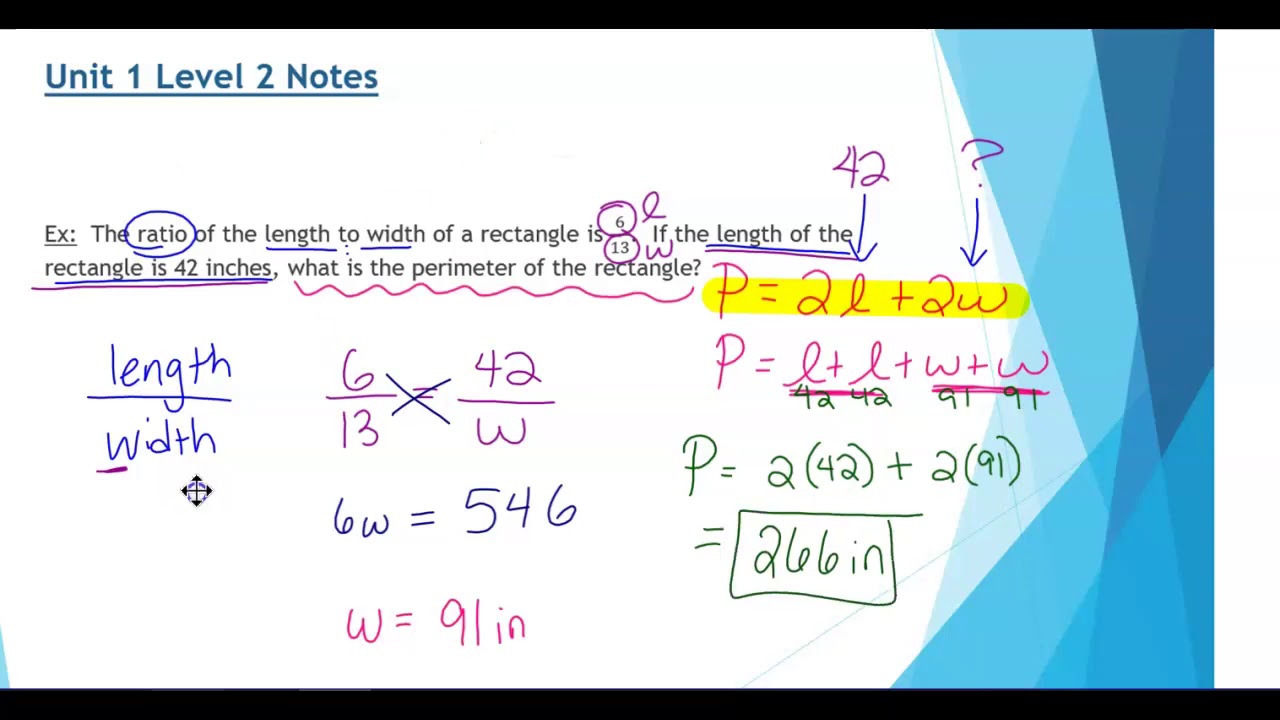 Unit 1 Level 2 Notes
42 ?
Ex: The ratio of the length to width of a rectangle is 6/13. If the length of the
l
w
rectangle is 42 inches, what is the perimeter of the rectangle?
P = 2l + 2w
length
width
6/13 = 42/w
P = l + l + w + w
42 42 91 91
P = 2(42) + 2(91)
6w = 546
= 266 in
w = 91 in